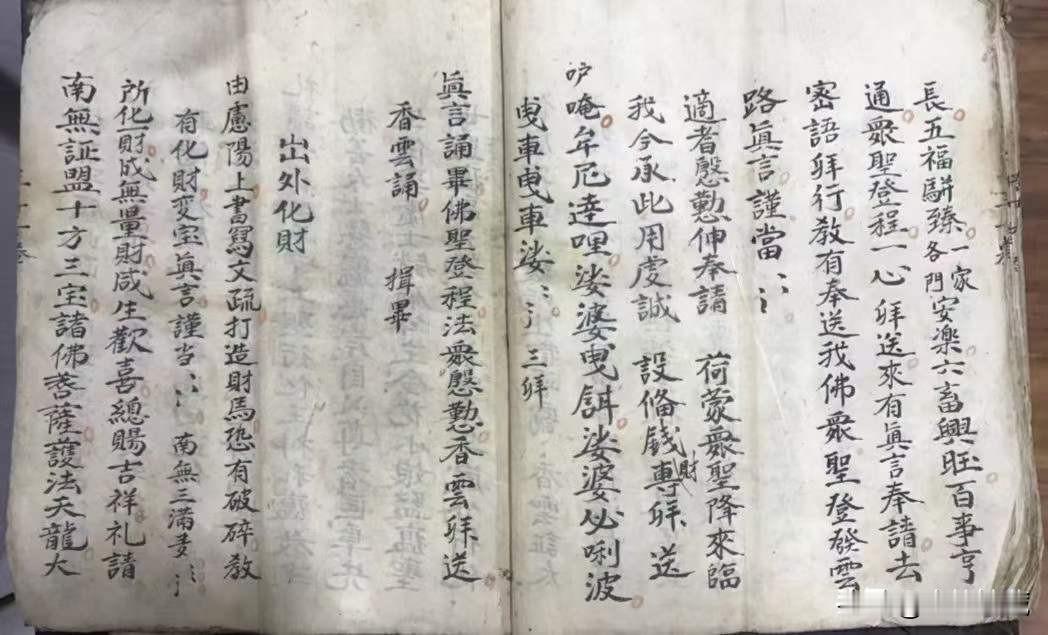 長五福駢臻一家各門安楽六畜興旺百事亨
通眾聖登程一心拜送來有真言奉請去
密語拜行教有奉送我佛眾聖登發雲
路真言謹當
適者慇懃伸奉請 荷蒙眾聖降來臨
我今承此用虔誠 設備錢財專拜送
唵牟尼達哩娑婆曳餌娑婆必唎波
曳車曳車娑 三拜
真言誦畢佛聖登程法眾慇懃香雲拜送
香雲誦 揖畢
出外化財
由慮陽上書寫文疏打造財馬恐有破碎教
有化財变宝真言謹当 南無三滿
所化財成無量財咸生歡喜總賜吉祥礼請
南無証盟十方三宝諸佛菩薩護法天龍大